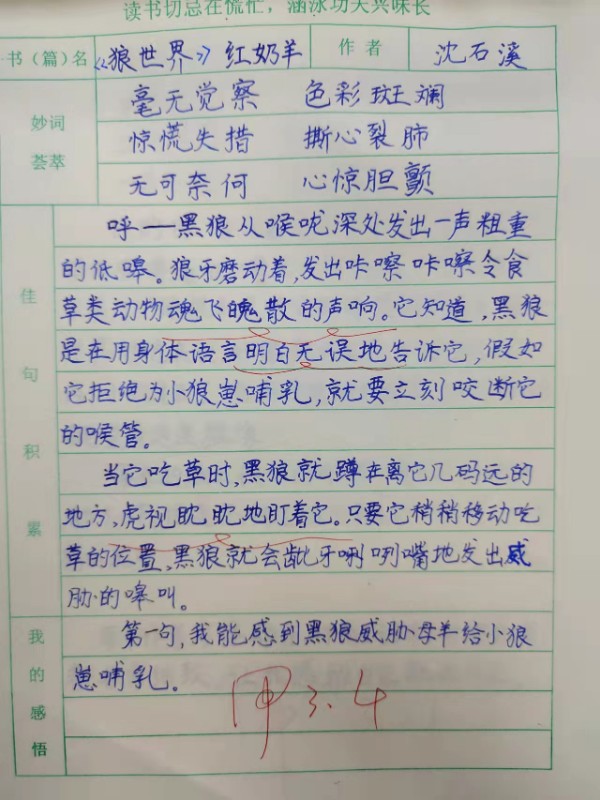 读书切忌在慌忙，涵泳功夫兴味长
书（篇）名 《狼世界》红奶羊 作者 沈石溪
妙词荟萃
毫无觉察 色彩斑斓
惊慌失措 撕心裂肺
无可奈何 心惊胆颤
佳句积累
呼——黑狼从喉咙深处发出一声粗重
的低嗥。狼牙磨动着，发出咔嚓咔嚓令食
草类动物魂飞魄散的声响。它知道，黑狼
是在用身体语言明白无误地告诉它，假如
它拒绝为小狼崽哺乳，就要立刻咬断它
的喉管。
当它吃草时，黑狼就蹲在离它几码远的
地方，虎视眈眈地盯着它。只要它稍稍移动吃
草的位置，黑狼就会龇牙咧咧嘴地发出威
胁的嗥叫。
我的感悟
第一句，我能感到黑狼威胁母羊给小狼
崽哺乳。
甲 3.4